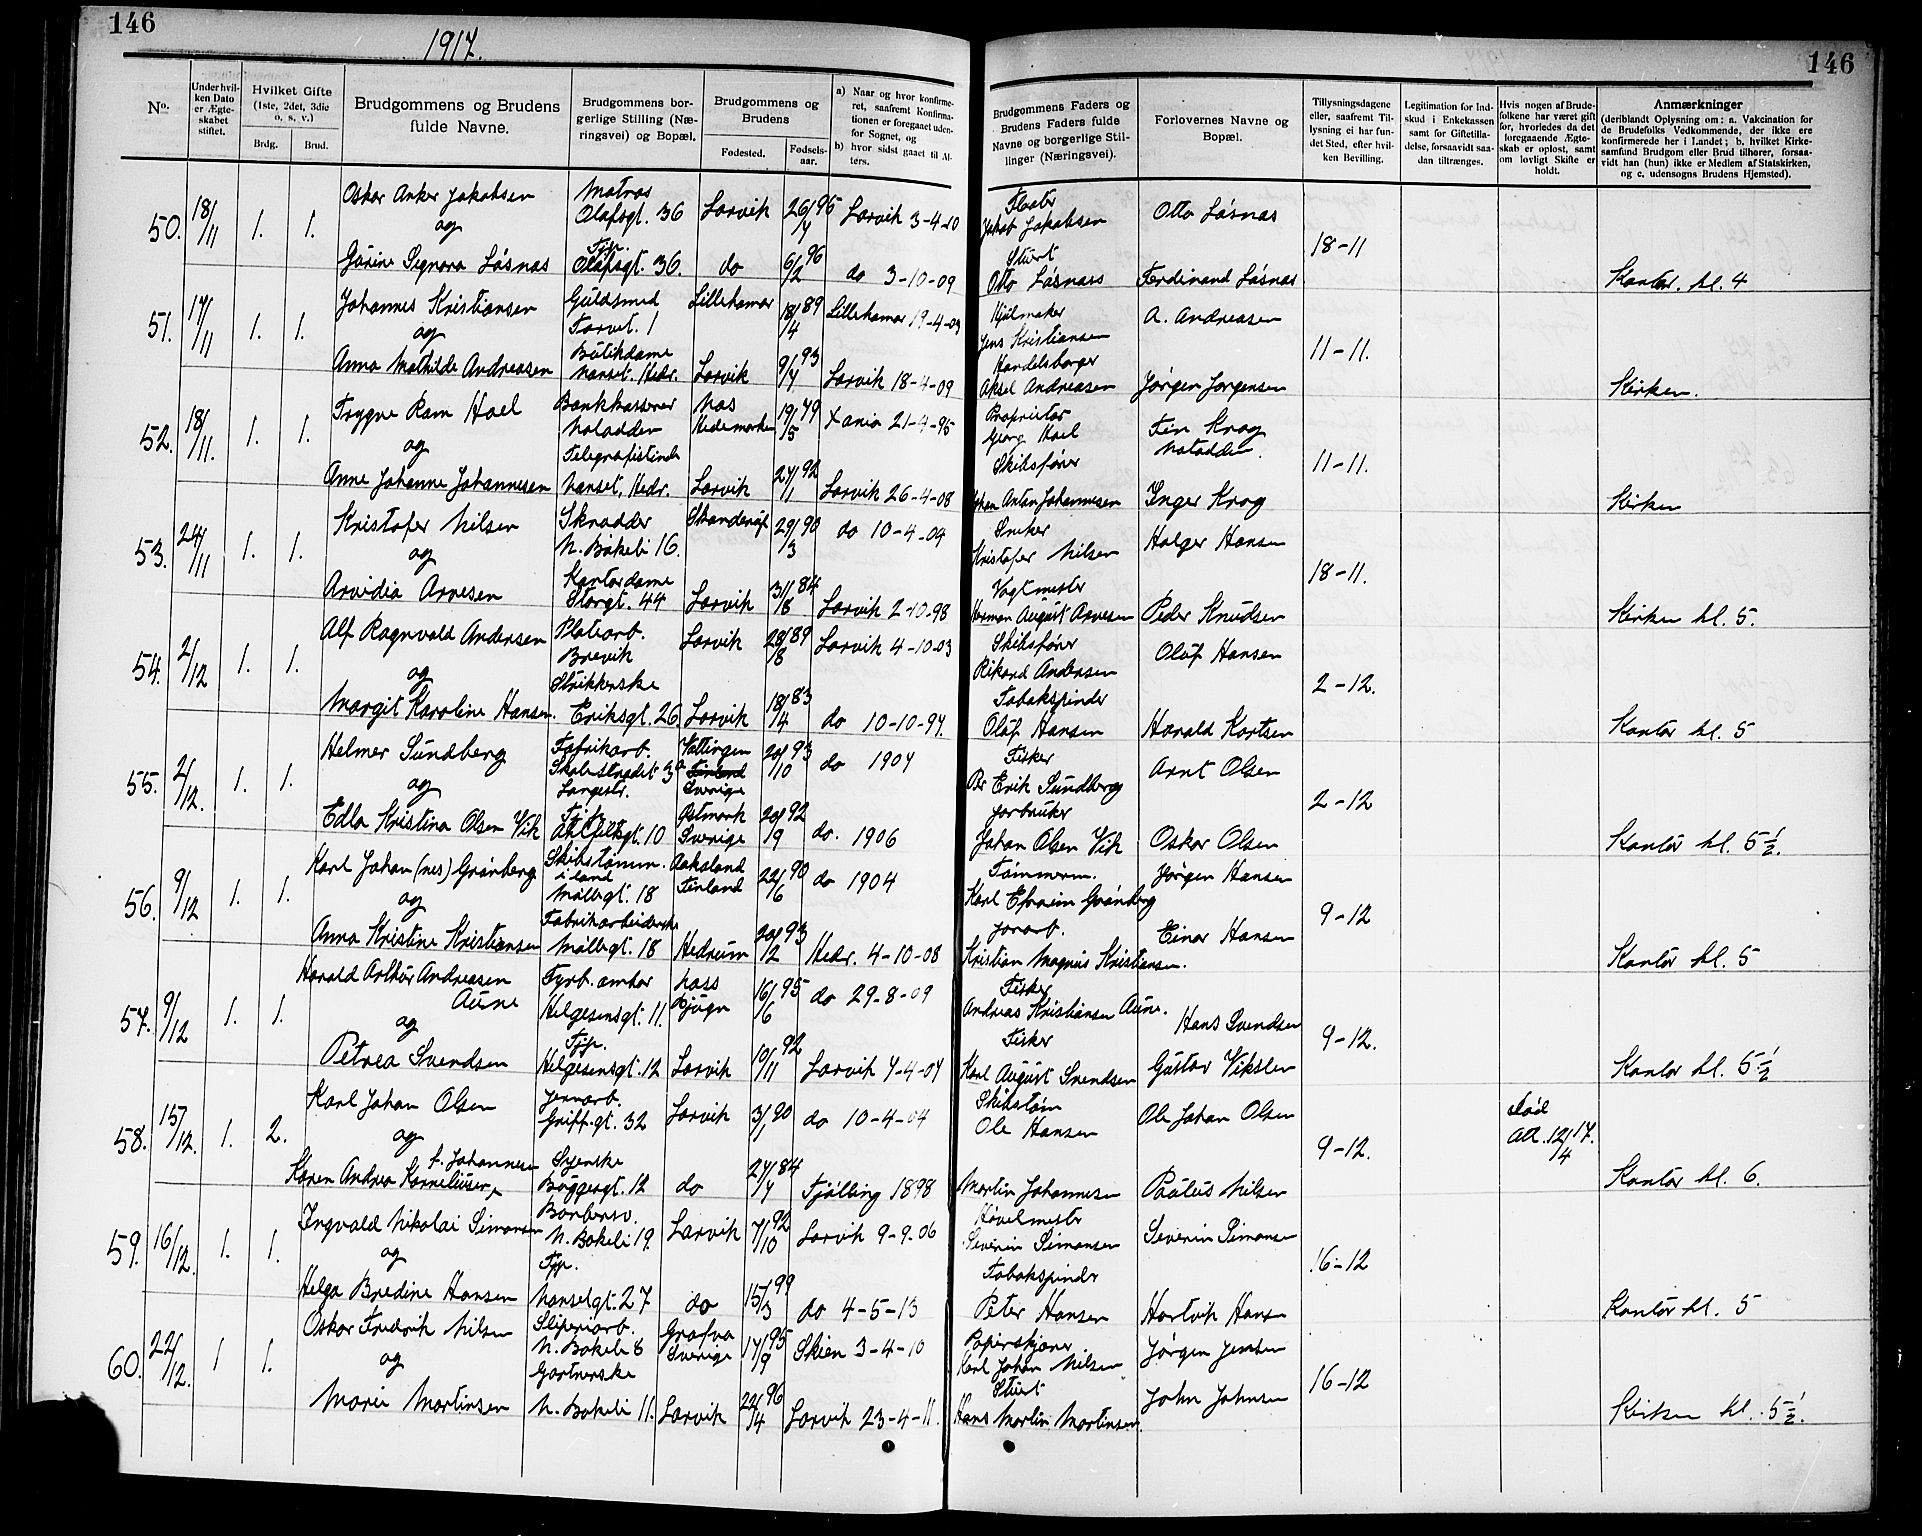 146
1917.
146
No.
Under hvilken Dato er Ægteskabet stiftet.
Hvilket Gifte (1ste, 2det, 3die o, s, v.)
Brdg. Brud.
Brudgommens og Brudens fulde Navne.
Brudgommens borgerlige Stilling (Næringsvei) og Bopæl.
Brudgommens og Brudens
Fødested. Fødselsaar.
a) Naar og hvor konfirmeret, saafremt Konfirmationen er foregaaet udenfor Sognet, og
b) hvor sidst gaaet til Alters.
Brudgommens Faders og Brudens Faders fulde Navne og borgerlige Stillinger (Næringsvei).
Forlovernes Navne og Bopæl.
Tillysningsdagene eller, saafremt Tillysning ei har fundet Sted, efter hvilken Bevilling.
Legitimation for Indskud i Enkekassen samt for Giftetilladelse, forsaavidt saadan tiltrænges.
Hvis nogen af Brudefolkene har været gift for, hvorledes da det foregaaende Ægteskab er opløst, samt om lovligt Skifte er holdt.
Anmærkninger
(deriblandt Oplysning om: a. Vakcination for de Brudefolks Vedkommende, der ikke ere konfirmerede her i Landet; b. hvilket Kirkesamfund Brudgom eller Brud tilhører, forsaavidt han (hun) ikke er Medlem af Statskirken, og c. udensogns Brudens Hjemsted).
50. 18/11 1. 1. Oskar Anker Jakobsen Matros Olafsgt. 36 Larvik 26/4 95 Larvik 3-4-10 Jakob Jakobsen Otto Løsnas 18-11
og
Gurine Signora Løsnas Tjp. Olafsgt. 36. do 6/2 96 do 3-10-09 Stuert Otto Løsnass Ferdinand Løsnas Kontor. kl. 4
51. 17/11 1. 1. Johannes Kristiansen Guldsmed Torvet. 1 Lillehamar 18/4 89 Lillehamar 19-4-03 Hjulmaker Jens Kristiansen A. Andreasen 11-11.
og
Anna Mathilde Andreasen Butikdame Nanset. Hedr. Larvik 9/4 93 Larvik 18-4-09 Handelsborger Aksel Andreasen Jørgen Jørgensen Kirken.
52. 18/11. 1. 1. Trygve Ram Hoel Bankkasserer Notodden Nas Hedemarken 19/5 79 Xania 21-4-95 Proprietær Georg Hoel Fin Krog Notodden. 11-11.
og
Anne Johanne Johannesen Telegrafistinde Nanset, Hedr. Larvik 27/1 92 Larvik 26-4-08 Skibsfører Johan Anton Johannesen Inger Krog Kirken
53. 24/11 1. 1. Kristofer Nilsen Skradder N. Bøkeli 16. 29/3 90 do 10-4-04 Sneker Kristofer Nilsen Holger Hansen 18-11.
og
Arvidia Arvesen Kontordame Storgt. 44 Larvik 31/8 84 Larvik 2-10-98 Vagtmester Herman August Arvesen Peder Knudsen Kirken kl. 5.
54. 2/12 1. 1. Alf Ragnvald Andersen Platearb. Brevik Larvik 28/8 89 Larvik 4-10-03 Skibsfører Rikard Andersen Oluf Hansen 2-12.
og
Margit Karoline Hansen. Strikkerske Eriksgt. 26. Larvik 18/4 83 do 10-10-97. Tobakspinder Oluf Hansen Harald Kortsen Kontor kl. 5
55. 2/12. 1. 1. Helmer Sundberg Fabrikarb. Skolestradet 3a Langestr. Finland Sverige 20/10 93 do 1907 Fisker Per Erik Sundberg Arnt Olsen 2-12
og
Edla Kristina Olsen Vik 10 Østmark Sverige 20/9 92 do. 1906 Jorbruker Johan Olsen Vik Oskar Olsen Kontor kl. 5½.
56. 9/12 1. 1. Karl Johan (nes) Grønberg Skibstømm. i land Møllegt. 18 Aaland Finland 22/6 90 do 1904 Tømmerm. Karl Efraim Grønberg Jørgen Hansen 9-12
og
Anna Kristine Kristiansen Fabrikarbeiderske Møllegt. 18 Hedrum 20/12 93 Hedr. 4-10-08 Jorarb. Kristian Magnus Kristiansen. Einar Hansen Kontor kl. 5
57. 9/12 1. 1. Harald Arthur Andreasen Aune Fyrb. ombor Helgesensgt. 11. Ness Bjugn 16/6 95 do 29-8-09 Fisker Andreas Kristiansen Aune. Hans Svendsen 9-12.
og
Petrea Svendsen Tjp. Helgesensgt. 12 Larvik 10/11 92 Larvik 7-4-07 Fisker Karl August Svendsen Gustav Vikslen Kontor kl. 5½
58. 15/12. 1. 2. Karl Johan Olsen Jernarb. Griff. gt. 32 Larvik 3/1 90 do 10-4-04 Skibstøm Ole Hansen Ole Johan Olsen 9-12. død Att. 12/4 17.
og
Karen Andrea Korneliusen f. Johannesen Syerske Byggesgt. 12 do 27/4 84 Tjølling 1898 Martin Johannesen Paulus Nilsen Kontor kl. 6.
59. 16/12. 1. 1. Ingvald Nikolai Simonsen Barbersv. N. Bøkeli 19. Larvik 7/10 92 Larvik 9-9-06 Høvelmester Severin Simonsen Severin Simonsen 16-12
og
Helga Bredine Hansen Tjp. Nansetgt. 27 do 15/3 99 do 4-5-13 Tobakspinder Peter Hansen Hartvik Hansen Kontor kl. 5
60. 22/12. 1 1. Oskar Fredrik Nilsen Sliperiarb. N. Bøkeli 8 Grafva Sverige 17/9 95 Skien 3-4-10 Karl Johan Nilsen Jørgen Jensen 16-12
og
Marie Martinsen Gartnerske N. Bøkeli 11. Larvik 22/4 96 Larvik 23-4-11. Stuert Hans Martin Martinsen. John Johnsen Kirken kl. 5½.